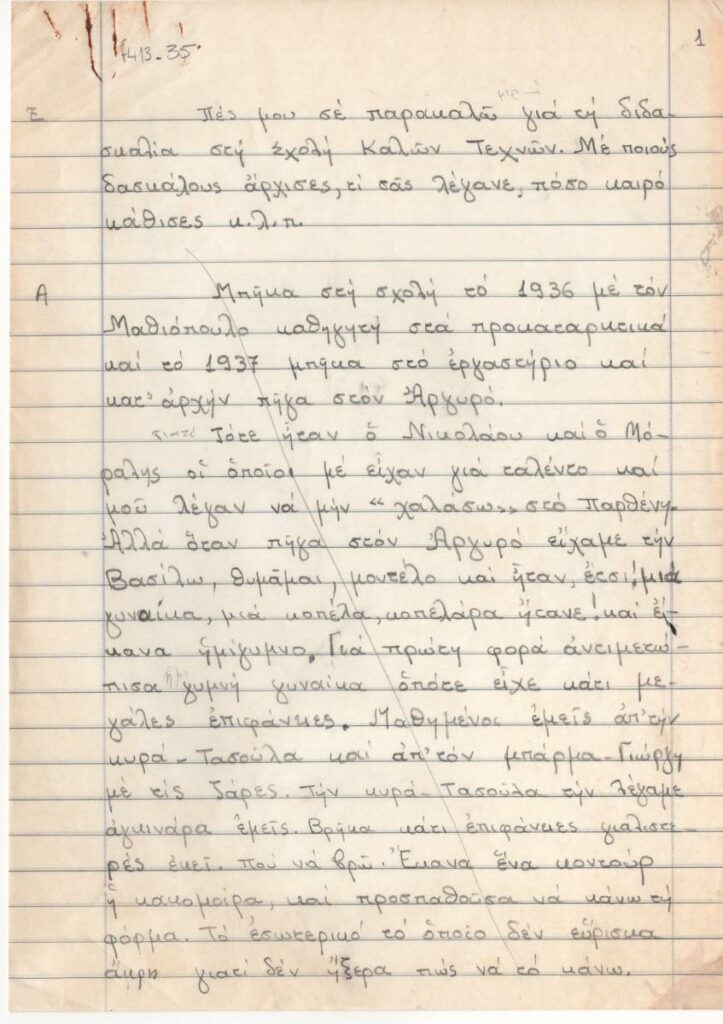 f413-35
1
Ε
Πές μου σέ παρακαλῶ γιά τή διδα-
σκαλία στή Σχολή Καλῶν Τεχνῶν. Μέ ποιούς
δασκάλους ἄρχισες, τί σᾶς λέγανε, πόσο καιρό
κάθισες κ.λ.π.
Α
Μπῆκα στή σχολή τό 1936 μέ τόν
Μαθιόπουλο καθηγητή στά προκαταρκτικά
καί τό 1937 μπῆκα στό ἐργαστήριο καί
κατ' ἀρχήν πῆγα στόν Ἀργυρό.
Τότε ἦταν ὁ Νικολάου καί ὁ Μό-
ραλης οἱ ὁποῖοι μέ εἶχαν γιά ταλέντο καί
μοῦ λέγαν νά μήν "χαλάσω" στό Παρθένη.
Ἀλλά ὅταν πῆγα στόν Ἀργυρό εἴχαμε τήν
Βασίλω, θυμᾶμαι, μοντέλο καί ἦταν, ἔτσι! μιά
γυναίκα, μιά κοπέλα, κοπελάρα ἤτανε! καί ἔ-
κανα ἡμίγυμνο. Γιά πρώτη φορά ἀντιμετώ-
πισα γυμνή γυναίκα ὁπότε εἶχε κάτι με-
γάλες ἐπιφάνειες. Μαθημένοι ἐμεῖς ἀπ' τήν
κυρά-Τασούλα καί ἀπ' τόν μπάρμα-Γιώργη
μέ τίς ζάρες. Τήν κυρά-Τασούλα τήν λέγαμε
ἀγκινάρα ἐμεῖς. Βρῆκα κάτι ἐπιφάνειες γυαλιστε-
ρές ἐκεῖ. Ποῦ νά βρῶ. Ἔκανα ἕνα κοντούρ
ἡ κακομοίρα, καί προσπαθοῦσα νά κάνω τή
φόρμα. Τό ἐσωτερικό τό ὁποῖο δέν εὕρισκα
ἄκρη γιατί δέν ἤξερα πῶς νά τό κάνω.